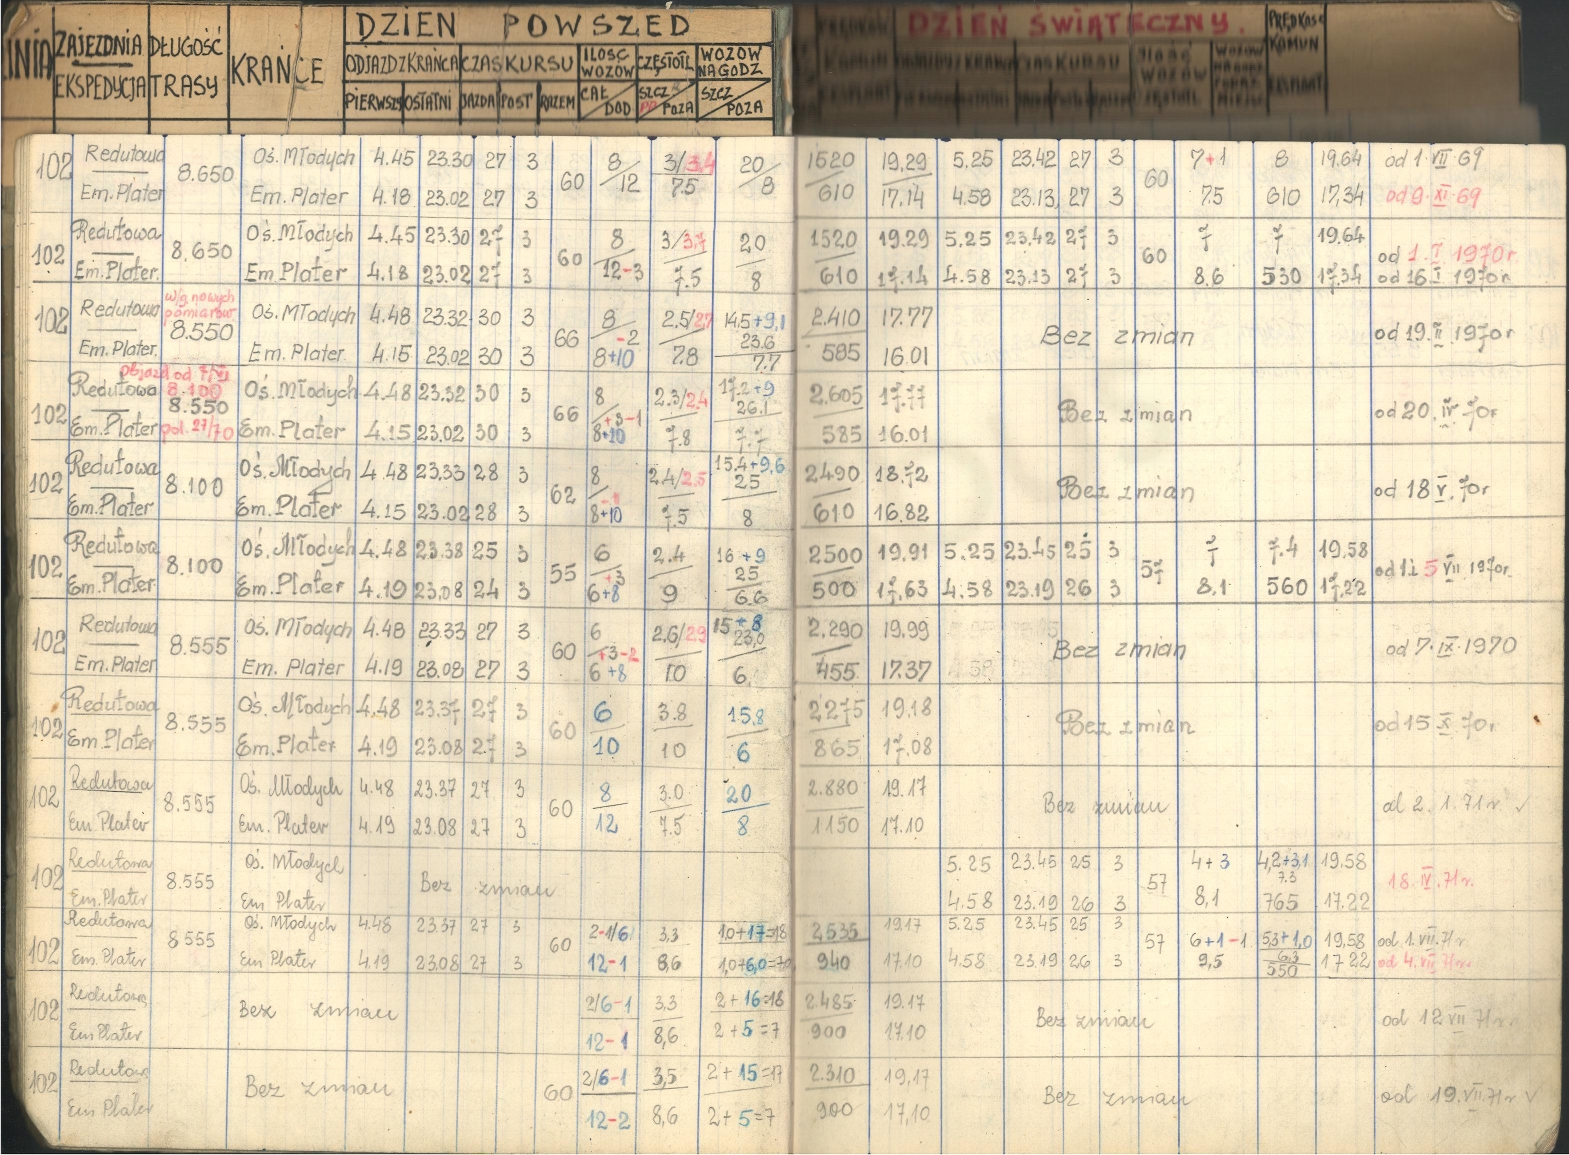 DZIEŃ POWSZED DZIEŃ ŚWIĄTECZNY.
LINIA ZAJEZDNIA EKSPEDYCJA DŁUGOŚĆ TRASY KRAŃCE ODJAZD Z KRAŃCA CZAS KURSU ILOŚĆ WOZÓW CZĘSTOTL WOZÓW NA GODZ
PIERWSZY OSTATNI JAZDA POST RAZEM CAŁ/DOD SZCZ/POZA SZCZ/POZA PRĘDKOŚĆ KOMUN EKSPLOAT
102 Redutowa 8.650 Oś. Młodych 4.45 23.30 27 3 60 8/12 3/3,4 20/8 1520 19,29 5.25 23.42 27 3 60 7+1 8 19,64 od 1. VII 69
Em. Plater Em. Plater 4.18 23.02 27 3 7.5 610 17,14 4.58 23.13 27 3 7.5 610 17,34 od 9. XI. 69
102 Redutowa 8.650 Oś. Młodych 4.45 23.30 27 3 60 8 3/3,7 20 1520 19.29 5.25 23.42 27 3 60 7 7 19.64 od 1. I. 1970r.
Em. Plater. Em Plater 4.18 23.02 27 3 12-3 7.5 8 610 17.14 4.58 23.13 27 3 8,6 530 17.34 od 16 I 1970r.
102 Redutowa w/g nowych pomiarów 8.550 Oś. Młodych 4.48 23.32 30 3 66 8 -2 2.5/27 14.5+9,1 23.6 2.410 17.77 Bez zmian od 19. II. 1970r
Em. Plater. Em. Plater. 4.15 23.02 30 3 8+10 7.8 7.7 585 16.01
objazd od 7/VI
102 Redutowa 8.100 8.550 Oś. Młodych 4.48 23.32 30 3 66 8 +3-1 2.3/2.4 17.2+9 26.1 2.605 17.77 Bez zmian od 20. IV 70r
Em. Plater pol. 27/70 Em. Plater 4.15 23.02 30 3 8+10 7.8 7.7 585 16.01
102 Redutowa 8.100 Oś. Młodych 4.48 23.33 28 3 62 8 2.4/2.5 15.4+9,6 25 2490 18.72 Bez zmian od 18 V. 70r
Em. Plater Em. Plater 4.15 23.02 28 3 8+10 7.5 8 610 16.82
102 Redutowa 8.100 Oś. Młodych 4.48 23.38 25 3 55 6 +3 2.4 16+9 25 2500 19,91 5.25 23.45 25 3 57 7 7.4 19,58 VII 1970r.
Em. Plater Em. Plater 4.19 23.08 24 3 6+8 9 6.6 500 17,63 4.58 23.19 26 3 8,1 560 17,22
102 Redutowa 8.555 Oś. Młodych 4.48 23.33 27 3 60 6 +3-2 2.6/29 15+8 23,0 2.290 19.99 Bez zmian od 7. IX. 1970
Em. Plater Em. Plater 4.19 23.08 27 3 6+8 10 6. 455 17.37
102 Redutowa 8.555 Oś. Młodych 4.48 23.37 27 3 60 6 3.8 15.8 2275 19.18 Bez zmian od 15 X. 70r
Em. Plater Em. Plater 4.19 23.08 27 3 10 10 6 865 17.08
102 Redutowa 8.555 Oś. Młodych 4.48 23.37 27 3 60 8 3.0 20 2.880 19.17 Bez zmian od 2. 1. 71r. ✓
Em. Plater Em. Plater 4.19 23.08 27 3 12 7.5 8 1150 17.10
102 Redutowa 8.555 Oś. Młodych Bez zmian 5.25 23.45 25 3 57 4+3 4,2+3,1 7.3 19.58 18. IV. 71r.
Em. Plater Em. Plater 4.58 23.19 26 3 8,1 765 17.22
102 Redutowa 8555 Oś. Młodych 4.48 23.37 27 3 60 2-1/6 3,3 1,0+17=18 2,535 19.17 5.25 23.45 25 3 57 6+1-1 5,3+1,0 6,3 19,58 od 1. VII. 71r
Em. Plater Em Plater 4.19 23.08 27 3 12-1 8,6 1,0+6,0=7,0 940 17.10 4.58 23.19 26 3 9,5 550 17 22 od 4. VII 71r.
102 Redutowa Bez zmian 2/6-1 3,3 2+16=18 2.485 19.17 Bez zmian od 12 VII 71r
Em Plater 12-1 8,6 2+5=7 900 17.10
102 Redutowa Bez zmian 60 2/6-1 3,5 2+15=17 2.310 19,17 Bez zmian od 19. VII. 71r ✓
Em Plater 12-2 8,6 2+5=7 900 17,10